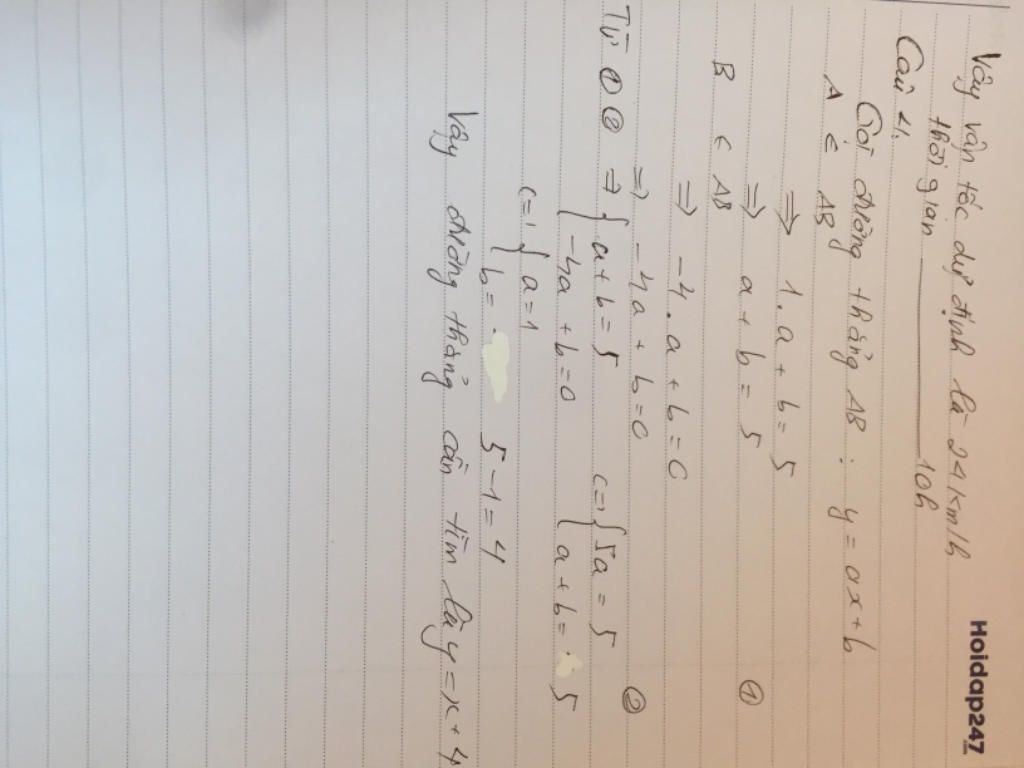 Hoidap247
Vậy vận tốc dự định là 24km/h
thời gian ——— 10h
Câu 4.
Gọi đường thẳng AB : y = ax + b
A ∈ AB
=> 1.a + b = 5
=> a + b = 5 ①
B ∈ AB
=> -4.a + b = 0
=> -4a + b = 0 ②
Từ ① ② => { a + b = 5 <=> { 5a = 5
{ -4a + b = 0 { a + b = 5
<=> { a = 1
{ b = 5 - 1 = 4
Vậy đường thẳng cần tìm là y = x + 4